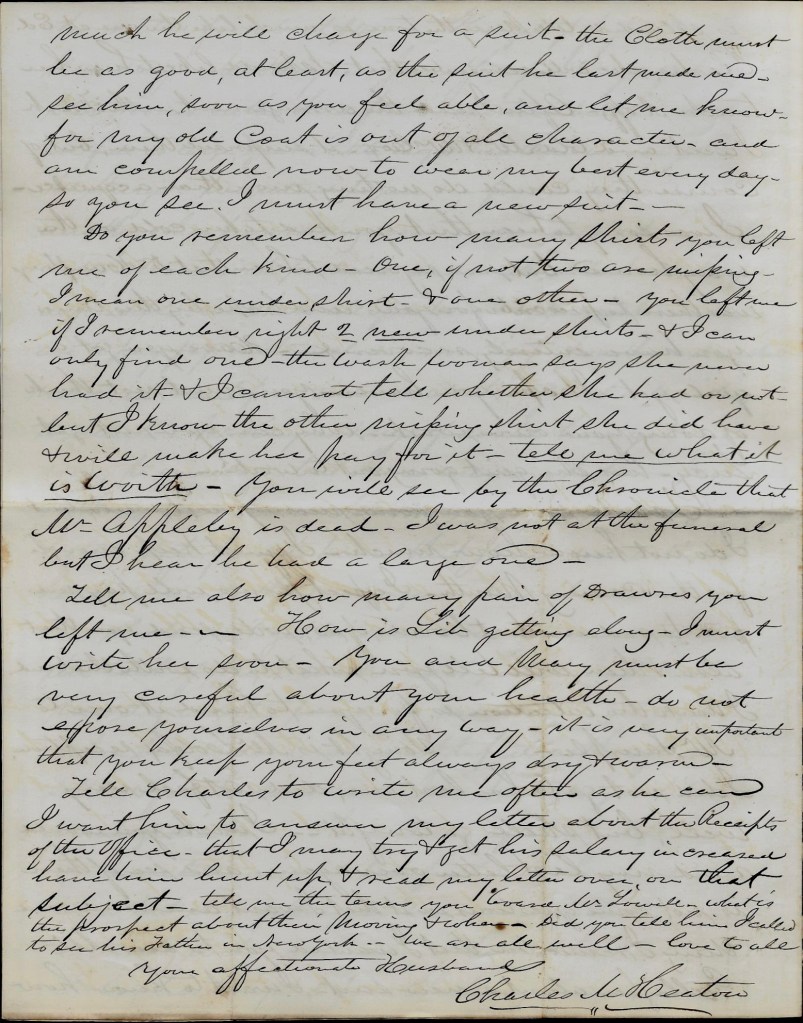 much he will charge for a suit - the Cloth must
be as good, at least, as the suit he last made me -
see him, soon as you feel able, and let me know -
for my old Coat is out of all character - and
am compelled now to wear my best every day -
so you see. I must have a new suit -
Do you remember how many shirts you left
me of each kind - One, if not two are missing -
I mean one under shirt - & one other - you left me
if I remember right 2 new under shirts - & I can
only find one - the wash woman says she never
had it - & I cannot tell whether she had or not -
but I know the other missing shirt she did have
& will make her pay for it - tell me what it
is worth - You will see by the Chronicle that
Mr Appleby is dead - I was not at the funeral
but I hear he had a large one -
Tell me also how many pair of Drawres you
left me - How is Lib getting along - I must
write her soon - You and Mary must be
very careful about your health - do not
expose yourselves in any way - it is very important
that you keep your feet always dry & warm -
Tell Charles to write me often as he can
I want him to answer my letter about the Receipts
of the Office - that I may try & get his salary increased
have him hunt up & read my letter over, on that
subject - tell me the terms you board Mr Lowell - what is
the prospect about their Moving & when - Did you tell him I called
to see his Father in New York - we are all well - love to all
Your affectionate Husband
Charles M Heaton